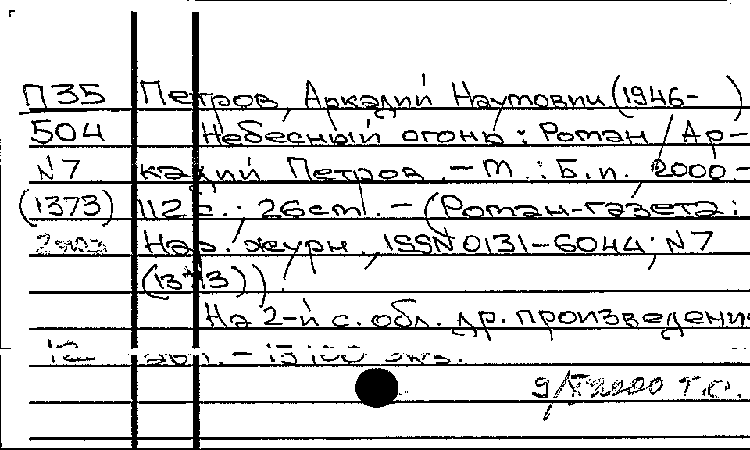 П35 Петров, Аркадий Наумович (1946- )
504 Небесный огонь: Роман / Ар-
N7 кадий Петров. – М.: Б.и. 2000 –
(1373) 112 с.; 26 cm. – (Роман-газета:
2экз Нар. журн., ISSN 0131-6044; N7
(1373)).
На 2-й с. обл. др. произведения
авт. – 15100 экз.
2000 Т.О.